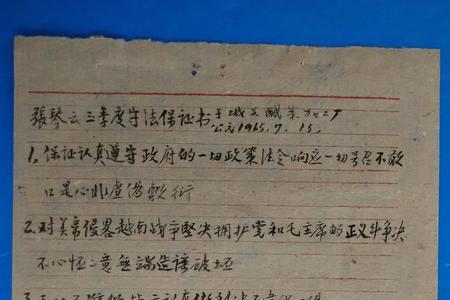 張琴云三季度守法保证书 于城关醎菜加工厂
公元1965.7.15.
1.保证认真遵守政府的一切政策法令响应一切号召不敢
口是心非虚偽敷衍
2.对美帝侵畧越南战争堅决拥护党和毛主席的正义斗争决
不心怀二意無端造謠破坏